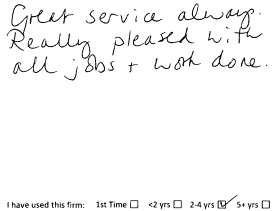 Great service always.
Really pleased with
all jobs + work done.
I have used this firm: 1st Time ☐ <2 yrs ☐ 2-4 yrs ☑ 5+ yrs ☐